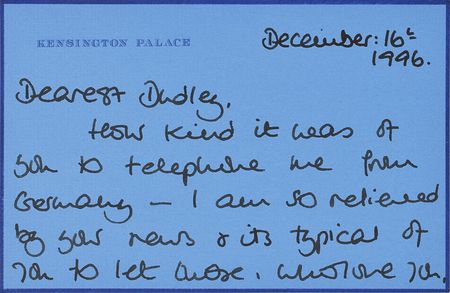 KENSINGTON PALACE
December: 16th
1996.
Dearest Dudley,
How kind it was of
you to telephone me from
Germany – I am so relieved
by your news & its typical of
you to let those, who love you,